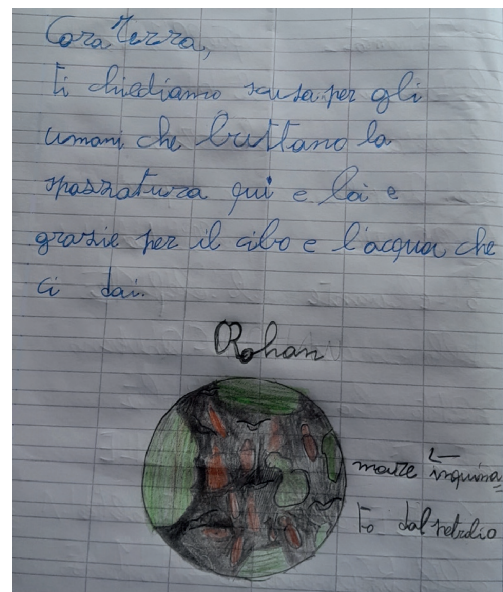 Cara Terra,
ti chiediamo scusa per gli
umani che buttano la
spazzatura qui e lai e
grazie per il cibo e l'acqua che
ci dai.
Rohan
mare inquina
to dal petrolio